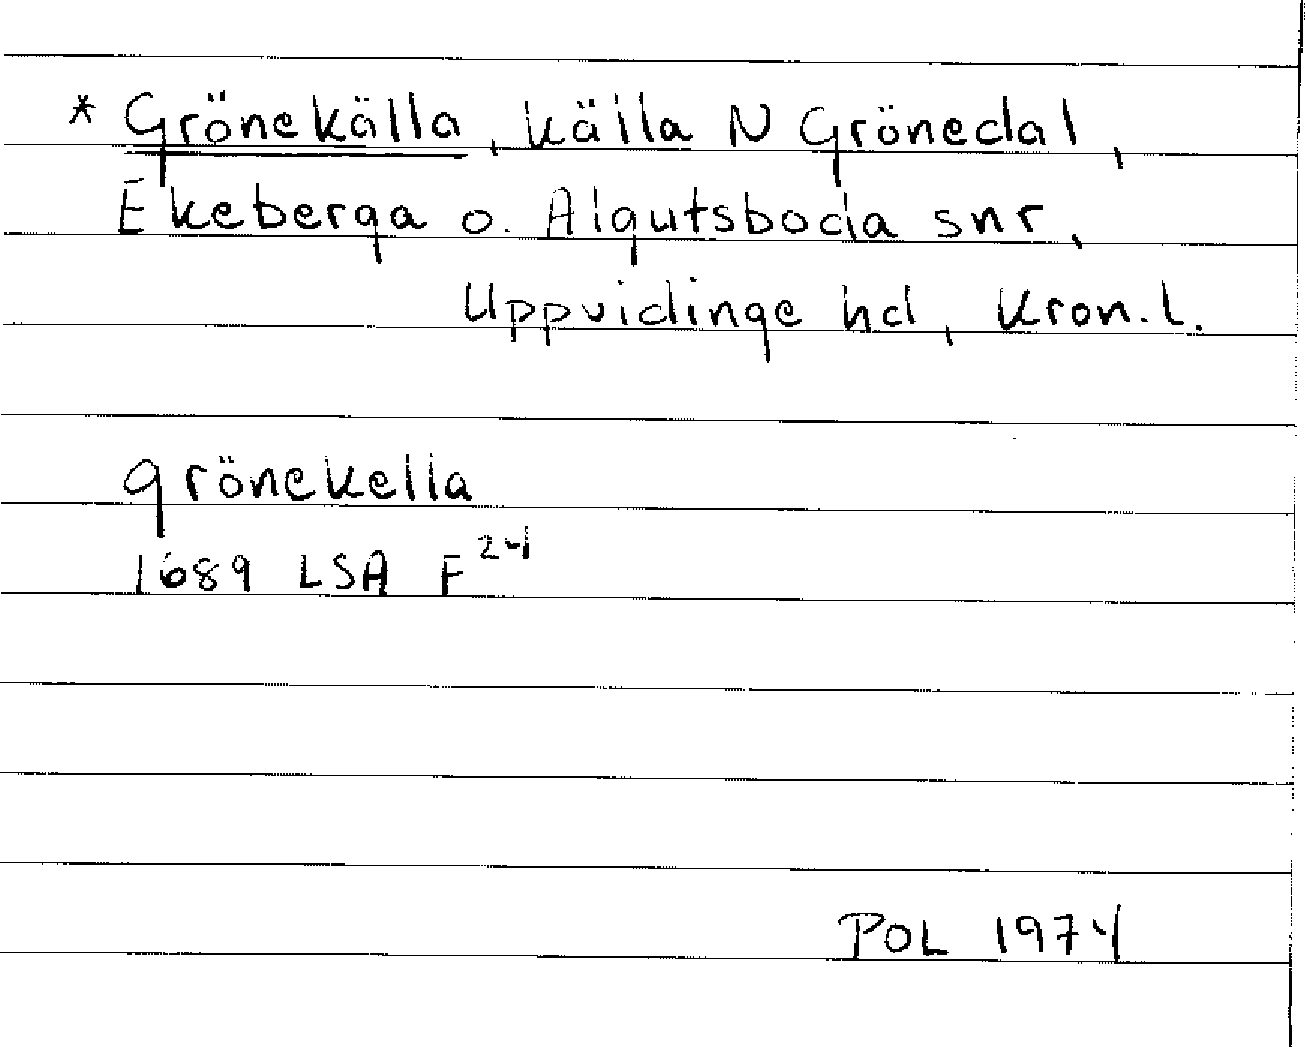 * Grönekälla, källa N Grönedal,
Ekeberga o. Algutsboda snr,
Uppvidinge hd, Kron.l.
grönekella
1689 LSA F 24
POL 1974